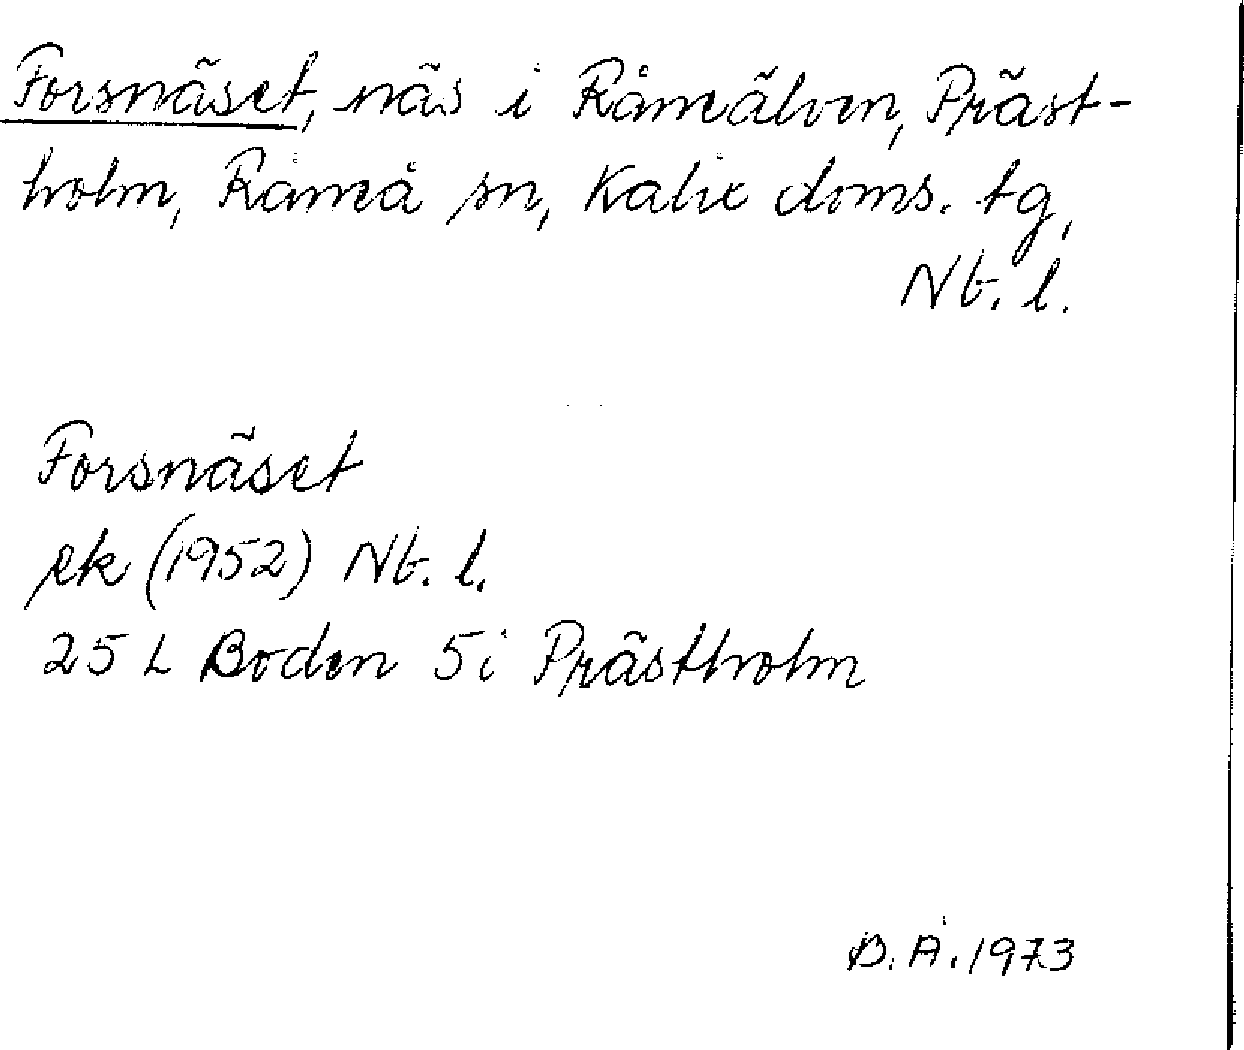 Forsnäset, näs i Råneälven, Präst-
holm, Råneå sn, Kalix doms. tg,
Nb. l.
Forsnäset
ek (1952) Nb. l.
25 L Boden 5i Prästholm
B. Å. 1973